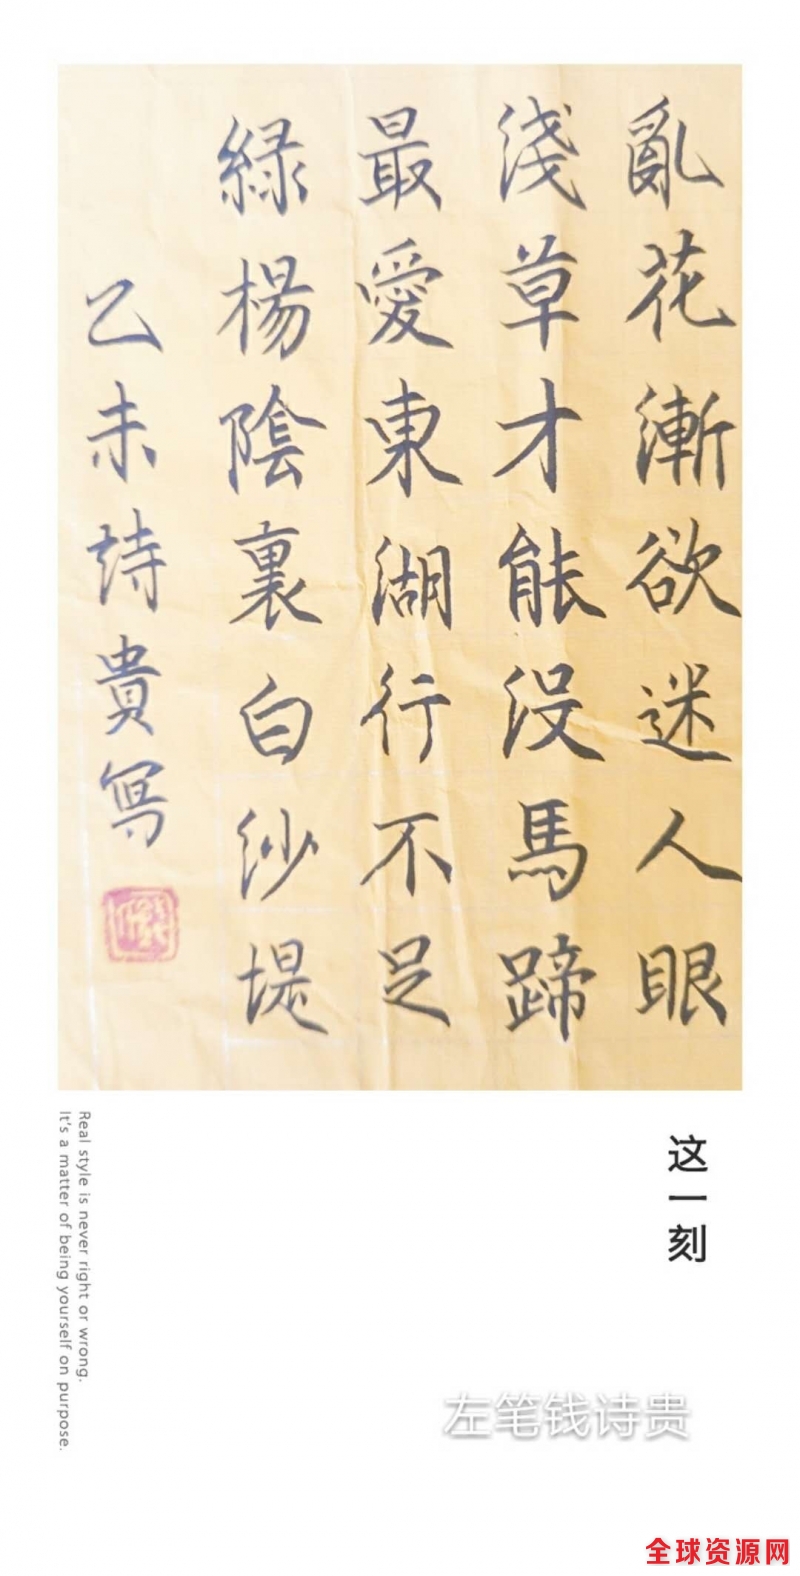 亂花漸欲迷人眼
淺草才能没馬蹄
最愛東湖行不足
緑楊陰裏白沙堤
乙未詩貴寫
这一刻
Real style is never right or wrong.
It's a matter of being yourself on purpose.
左笔钱诗贵
全球资源网